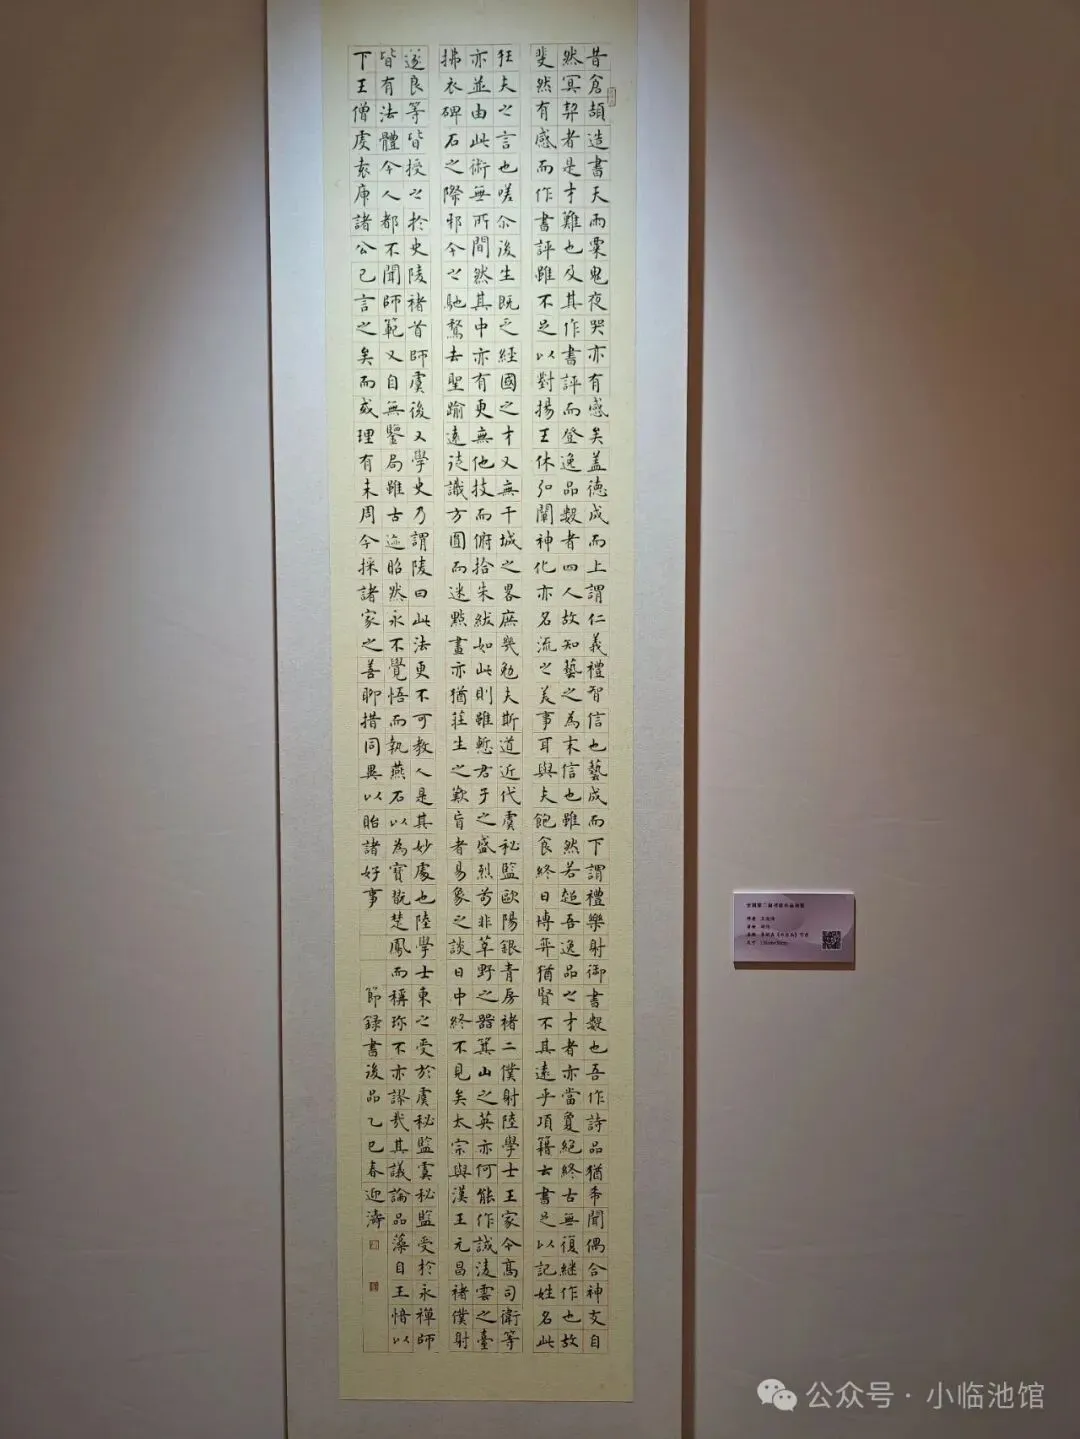 昔倉頡造書天雨粟鬼夜哭亦有感矣盖德成而上謂仁義禮智信也藝成而下謂禮樂射御書數也吾作詩品猶希聞偶合神交自
然冥契者是才難也及其作書評而登逸品數者四人故知藝之為末信也雖然若超吾逸品之才者亦當夐絕終古無復継作也故
斐然有感而作書評雖不足以對揚王休弘闡神化亦名流之美事耳與夫飽食終日博弈猶賢不其遠乎項籍云書足以記姓名此
狂夫之言也嗟尒後生既乏經國之才又無干城之畧庶幾勉夫斯道近代虞秘監歐陽銀青房褚二僕射陸學士王家令高司衛等
亦並由此術無所間然其中亦有更無他技而俯拾朱紱如此則雖慙君子之盛烈苟非草野之器箕山之英亦何能作誡淩雲之臺
拂衣碑石之際邪今之馳騖去聖踰遠徒識方圓而迷點畫亦猶荘生之歎盲者易象之談日中終不見矣太宗與漢王元昌褚僕射
遂良等皆授之於史陵褚首師虞後又學史乃謂陵曰此法更不可教人是其妙處也陸學士柬之受於虞秘監虞秘監受於永禪師
皆有法體今人都不聞師範又自無鑒局雖古迹昭然永不覺悟而執燕石以為寶翫楚鳳而稱珎不亦謬哉其議論品藻自王愔以
下王僧虔袁庾諸公已言之矣而或理有未周今採諸家之善聊措同異以貽諸好事
節録書後品乙巳春迎濤
公众号·小临池馆